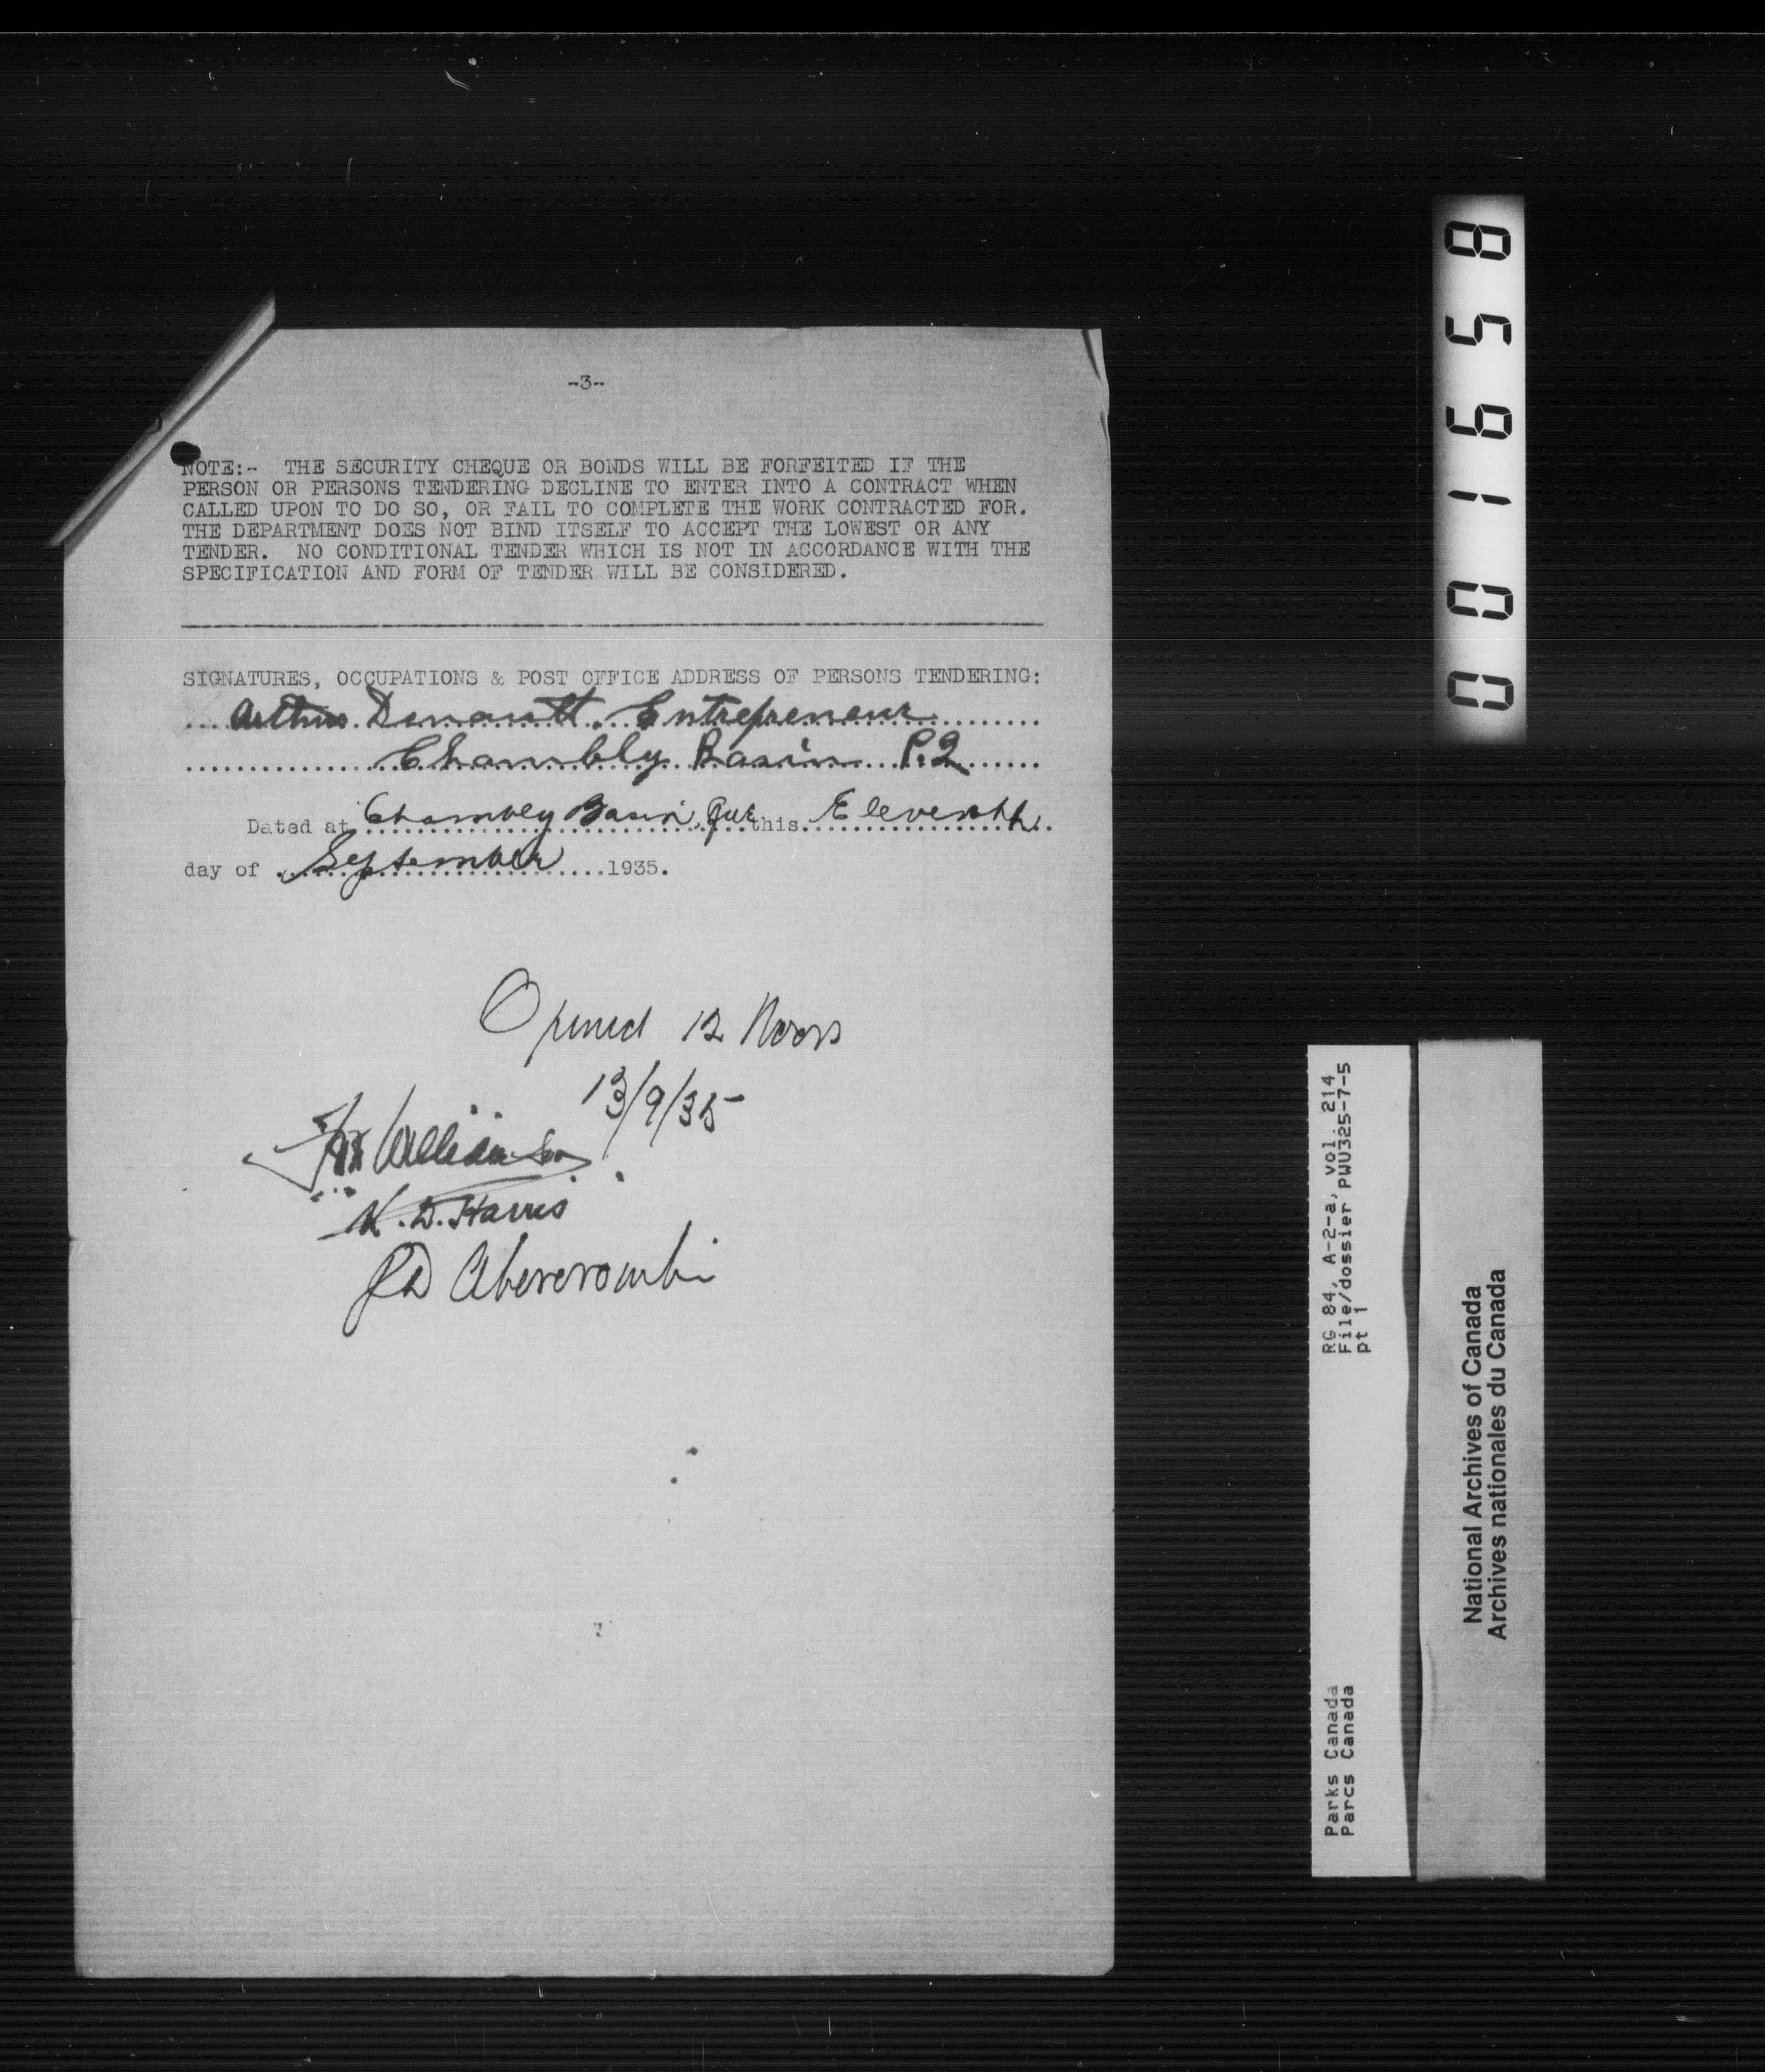 -3-
NOTE:- THE SECURITY CHEQUE OR BONDS WILL BE FORFEITED IF THE
PERSON OR PERSONS TENDERING DECLINE TO ENTER INTO A CONTRACT WHEN
CALLED UPON TO DO SO, OR FAIL TO COMPLETE THE WORK CONTRACTED FOR.
THE DEPARTMENT DOES NOT BIND ITSELF TO ACCEPT THE LOWEST OR ANY
TENDER. NO CONDITIONAL TENDER WHICH IS NOT IN ACCORDANCE WITH THE
SPECIFICATION AND FORM OF TENDER WILL BE CONSIDERED.
SIGNATURES, OCCUPATIONS & POST OFFICE ADDRESS OF PERSONS TENDERING:
Arthur Denault. Entrepreneur
Chambly Basin P.Q
Dated at Chambly Basin, Que this Eleventh
day of September 1935.
Opened 12 Noon
13/9/35
Williamson
K. D. Harris
Abercrombi
001658
RG 84, A-2-a, vol. 214
File/dossier PWU325-7-5
pt 1
Parks Canada
Parcs Canada
National Archives of Canada
Archives nationales du Canada